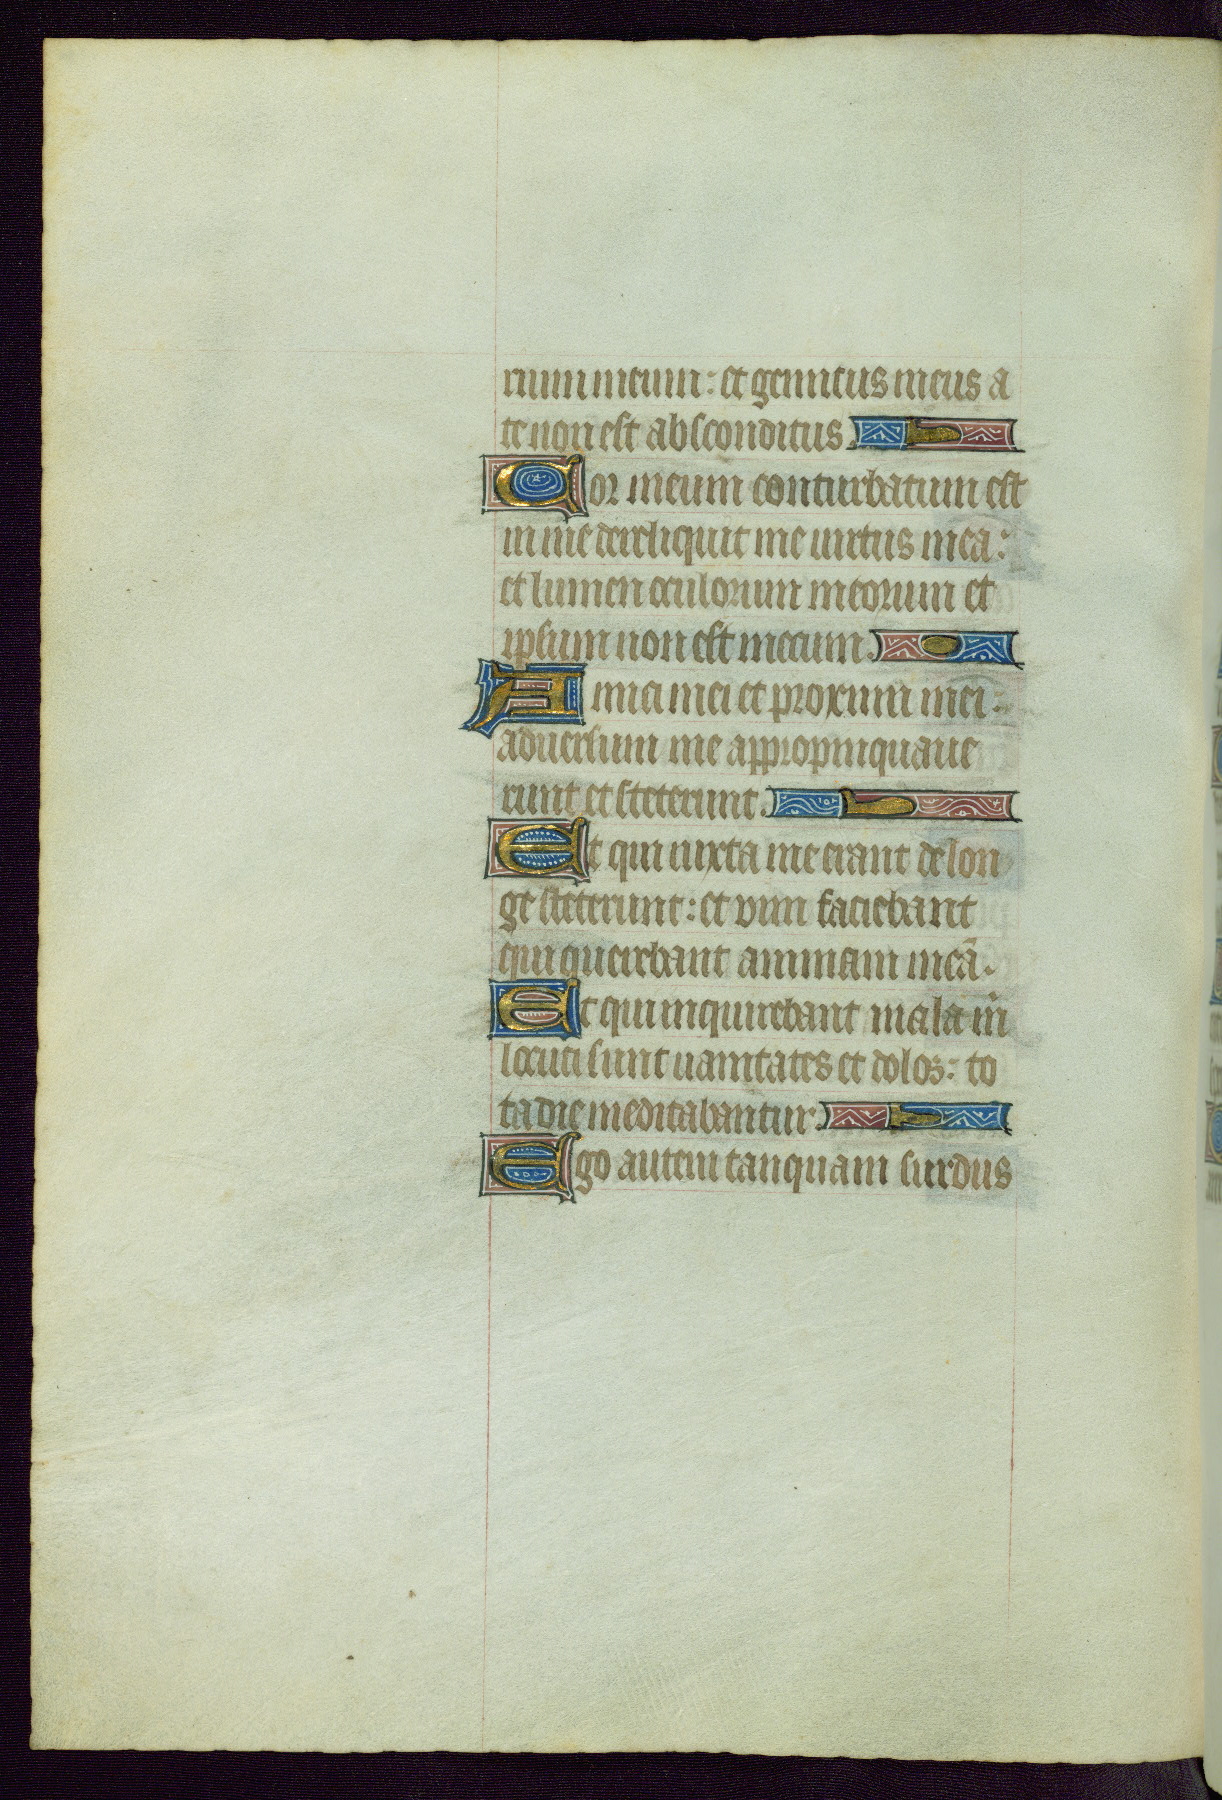 rium meum: et gemitus meus a
te non est absconditus.
Cor meum conturbatum est
in me dereliquit me uirtus mea:
et lumen oculorum meorum et
ipsum non est mecum.
Amici mei et proximi mei:
aduersum me appropinquaue
runt et steterunt.
Et qui iuxta me erant de lon
ge steterunt: et vim faciebant
qui querebant animam meā.
Et qui inquirebant mala m̄
locuti sunt uanitates et dolos: to
ta die meditabantur.
Ego autem tanquam surdus